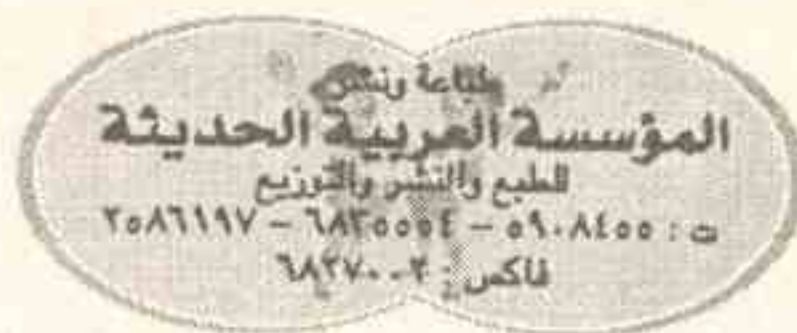 طباعة ونشر
المؤسسة العربية الحديثة
للطبع والنشر والتوزيع
ت : ٥٩٠٨٤٥٥ – ٦٨٣٥٥٥٤ – ٢٥٨٦١٩٧
فاكس : ٦٨٢٧٠٠٢